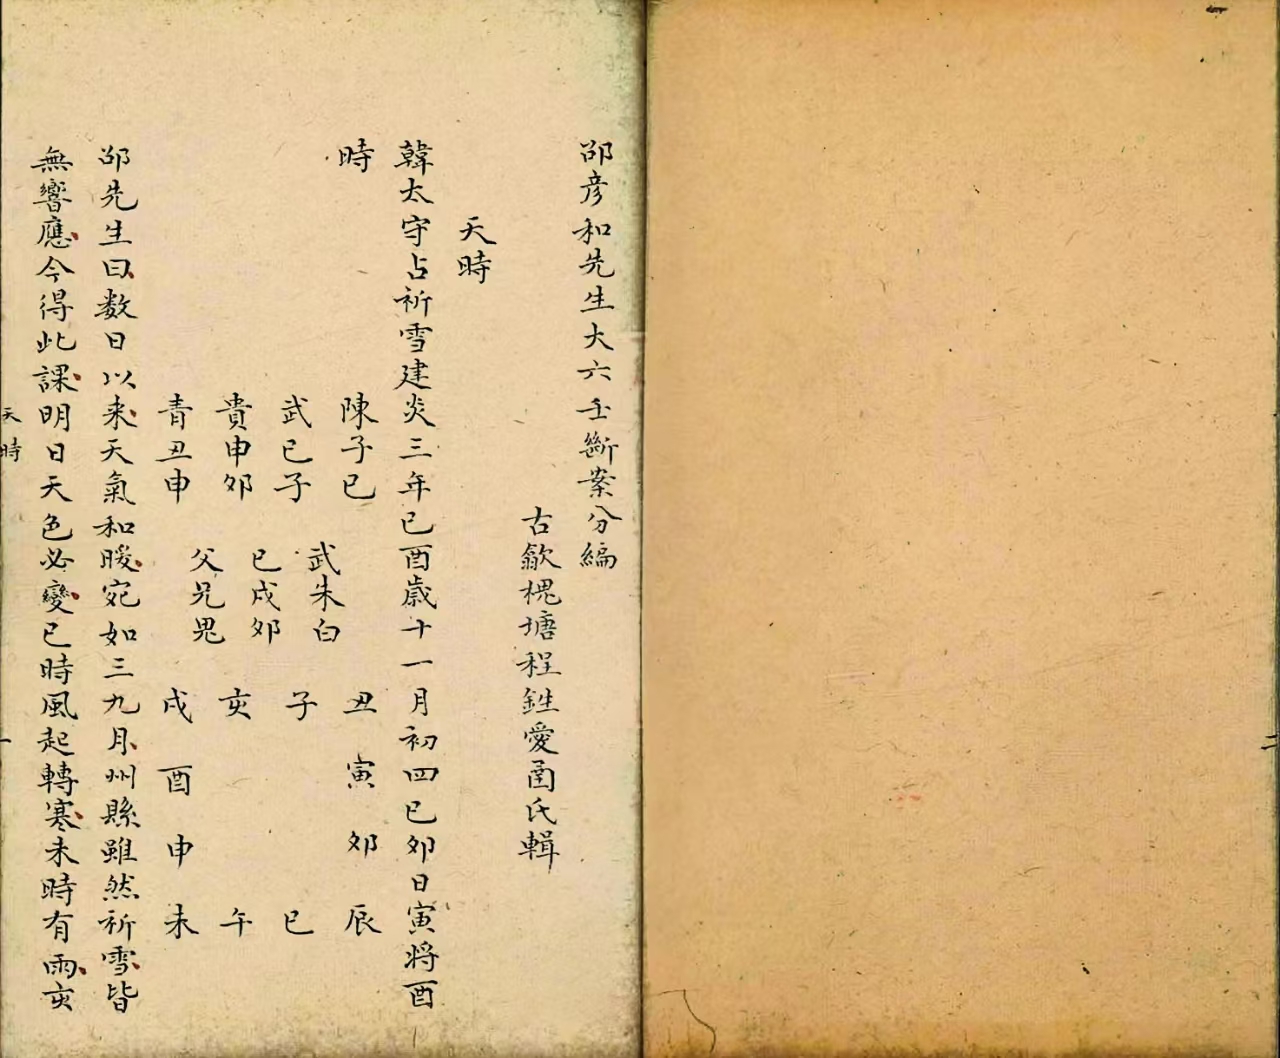 邵彦和先生大六壬斷案分編
古歙槐塘程鉎愛函氏輯
天時
韓太守占祈雪建炎三年己酉歲十一月初四己卯日寅將酉
時
陳子巳
武巳子
貴申卯
青丑申
武朱白
巳戌卯
父兄鬼
丑寅卯辰
子巳
亥午
戌酉申未
邵先生曰数日以来天氣和暖宛如三九月州縣雖然祈雪皆
無響應今得此課明日天色必變巳時風起轉寒未時有雨亥
天時
一